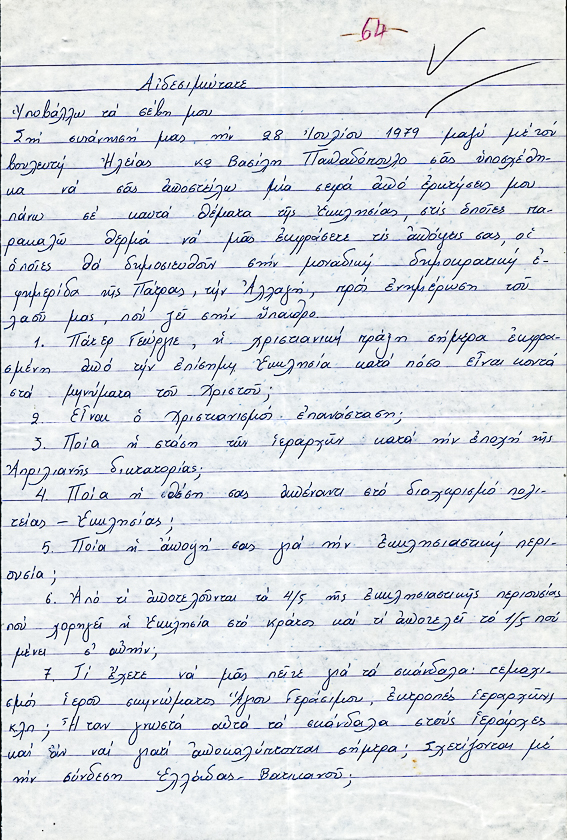 64
Αἰδεσιμώτατε
Ὑποβάλλω τά σέβη μου
Στή συνάντησή μας τήν 28 Ἰουλίου 1979 μαζί μέ τόν
βουλευτή Ἠλείας κο Βασίλη Παπαδόπουλο σᾶς ὑποσχέθη-
κα νά σᾶς ἀποστείλω μία σειρά ἀπό ἐρωτήσεις μου
πάνω σέ καυτά θέματα τῆς Ἐκκλησίας, στίς ὁποῖες πα-
ρακαλῶ θερμά νά μᾶς ἐκφράσετε τίς ἀπόψεις σας, οἱ
ὁποῖες θά δημοσιευθοῦν στήν μοναδική δημοκρατική ἐ-
φημερίδα τῆς Πάτρας, τήν Ἀλλαγή, πρός ἐνημέρωση τοῦ
λαοῦ μας, πού ζεῖ στήν ὕπαιθρο.
1. Πάτερ Γεώργιε, ἡ χριστιανική πράξη σήμερα ἐκφρα-
σμένη ἀπό τήν ἐπίσημη Ἐκκλησία κατά πόσο εἶναι κοντά
στά μηνύματα τοῦ Χριστοῦ;
2. Εἶναι ὁ Χριστιανισμός ἐπανάσταση;
3. Ποία ἡ στάση τῶν ἱεραρχῶν κατά τήν ἐποχή τῆς
Ἀπριλιανῆς δικτατορίας;
4. Ποία ἡ θέση σας ἀπέναντι στό διαχωρισμό πολι-
τείας – Ἐκκλησίας;
5. Ποία ἡ ἄποψή σας γιά τήν ἐκκλησιαστική περι-
ουσία;
6. Ἀπό τί ἀποτελοῦνται τά 4/5 τῆς ἐκκλησιαστικῆς περιουσίας
πού χορηγεῖ ἡ Ἐκκλησία στό κράτος καί τί ἀποτελεῖ τό 1/5 πού
μένει σ' αὐτήν;
7. Τί ἔχετε νά μᾶς πεῖτε γιά τά σκάνδαλα: τεμαχι-
σμός ἱεροῦ σκηνώματος Ἁγίου Γεράσιμου, ἐκτροπές ἱεραρχῶν
κλπ; Ἦταν γνωστά αὐτά τά σκάνδαλα στούς ἱεράρχες
καί ἄν ναί γιατί ἀποκαλύπτονται σήμερα; Σχετίζονται μέ
τήν σύνδεση Ἑλλάδας – Βατικανοῦ;